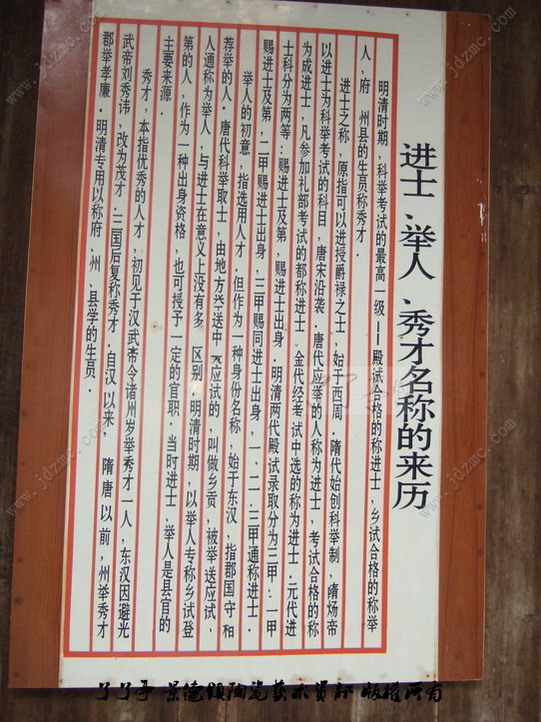 进士、举人、秀才名称的来历
明清时期，科举考试的最高一级——殿试合格的称进士，乡试合格的称举
人，府、州县的生员称秀才．
进士之称，原指可以进授爵禄之士，始于西周．隋代始创科举制，隋炀帝
以进士为科举考试的科目，唐宋沿袭．唐代应举的人称为进士，考试合格的称
为成进士，凡参加礼部考试的都称进士．金代经考试中选的称为进士．元代进
士科分为两等：赐进士及第，赐进士出身．明清两代殿试录取分为三甲：一甲
赐进士及第，二甲赐进士出身，三甲赐同进士出身，一、二、三甲通称进士．
举人的初意，指选用人才．但作为一种身份名称，始于东汉，指郡国守相
荐举的人．唐代科举取士，由地方送中应试的，叫做乡贡，被举送应试
人通称为举人，与进士在意义上没有多区别．明清时期，以举人专称乡试登
第的人，作为一种出身资格，也可授予一定的官职．当时进士、举人是县官的
主要来源．
秀才，本指优秀的人才，初见于汉武帝令诸州岁举秀才一人，东汉因避光
武帝刘秀讳，改为茂才．三国后复称秀才．自汉以来，隋唐以前，州举秀才
郡举孝廉．明清专用以称府、州、县学的生员．
景德镇陶瓷艺术 版权所有
www.jdzmc.com
www.jdzmc.com
www.jdzmc.com
www.jdzmc.com